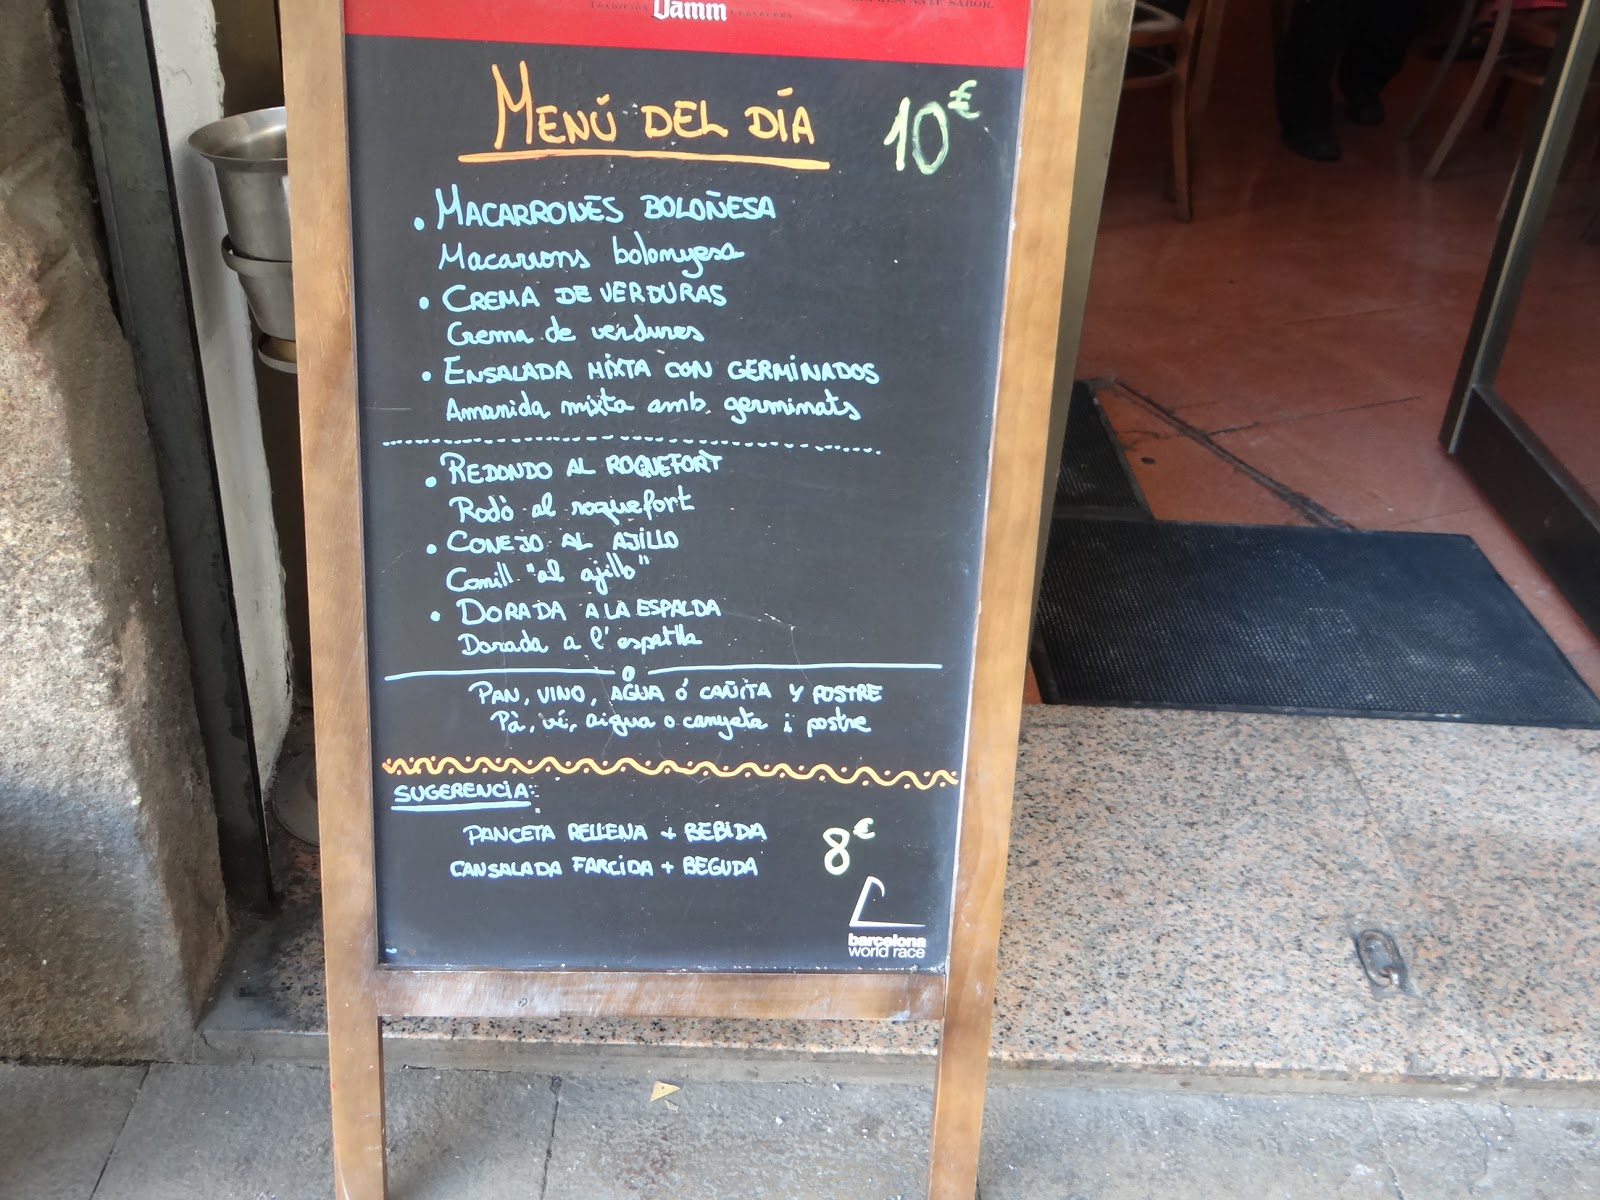 TRADICIÓN Damm CERVECERA
SABOR.
MENÚ DEL DÍA 10€
• MACARRONES BOLOÑESA
Macarrons bolonyesa
• CREMA DE VERDURAS
Crema de verdures
• ENSALADA MIXTA CON GERMINADOS
Amanida mixta amb germinats
• REDONDO AL ROQUEFORT
Rodò al roquefort
• CONEJO AL AJILLO
Conill "al ajillo"
• DORADA A LA ESPALDA
Dorada a l'espatlla
PAN, VINO, AGUA Ó CAÑITA Y POSTRE
Pà, vi, aigua o canyeta i postre
SUGERENCIA:
PANCETA RELLENA + BEBIDA 8€
CANSALADA FARCIDA + BEGUDA
barcelona
world race